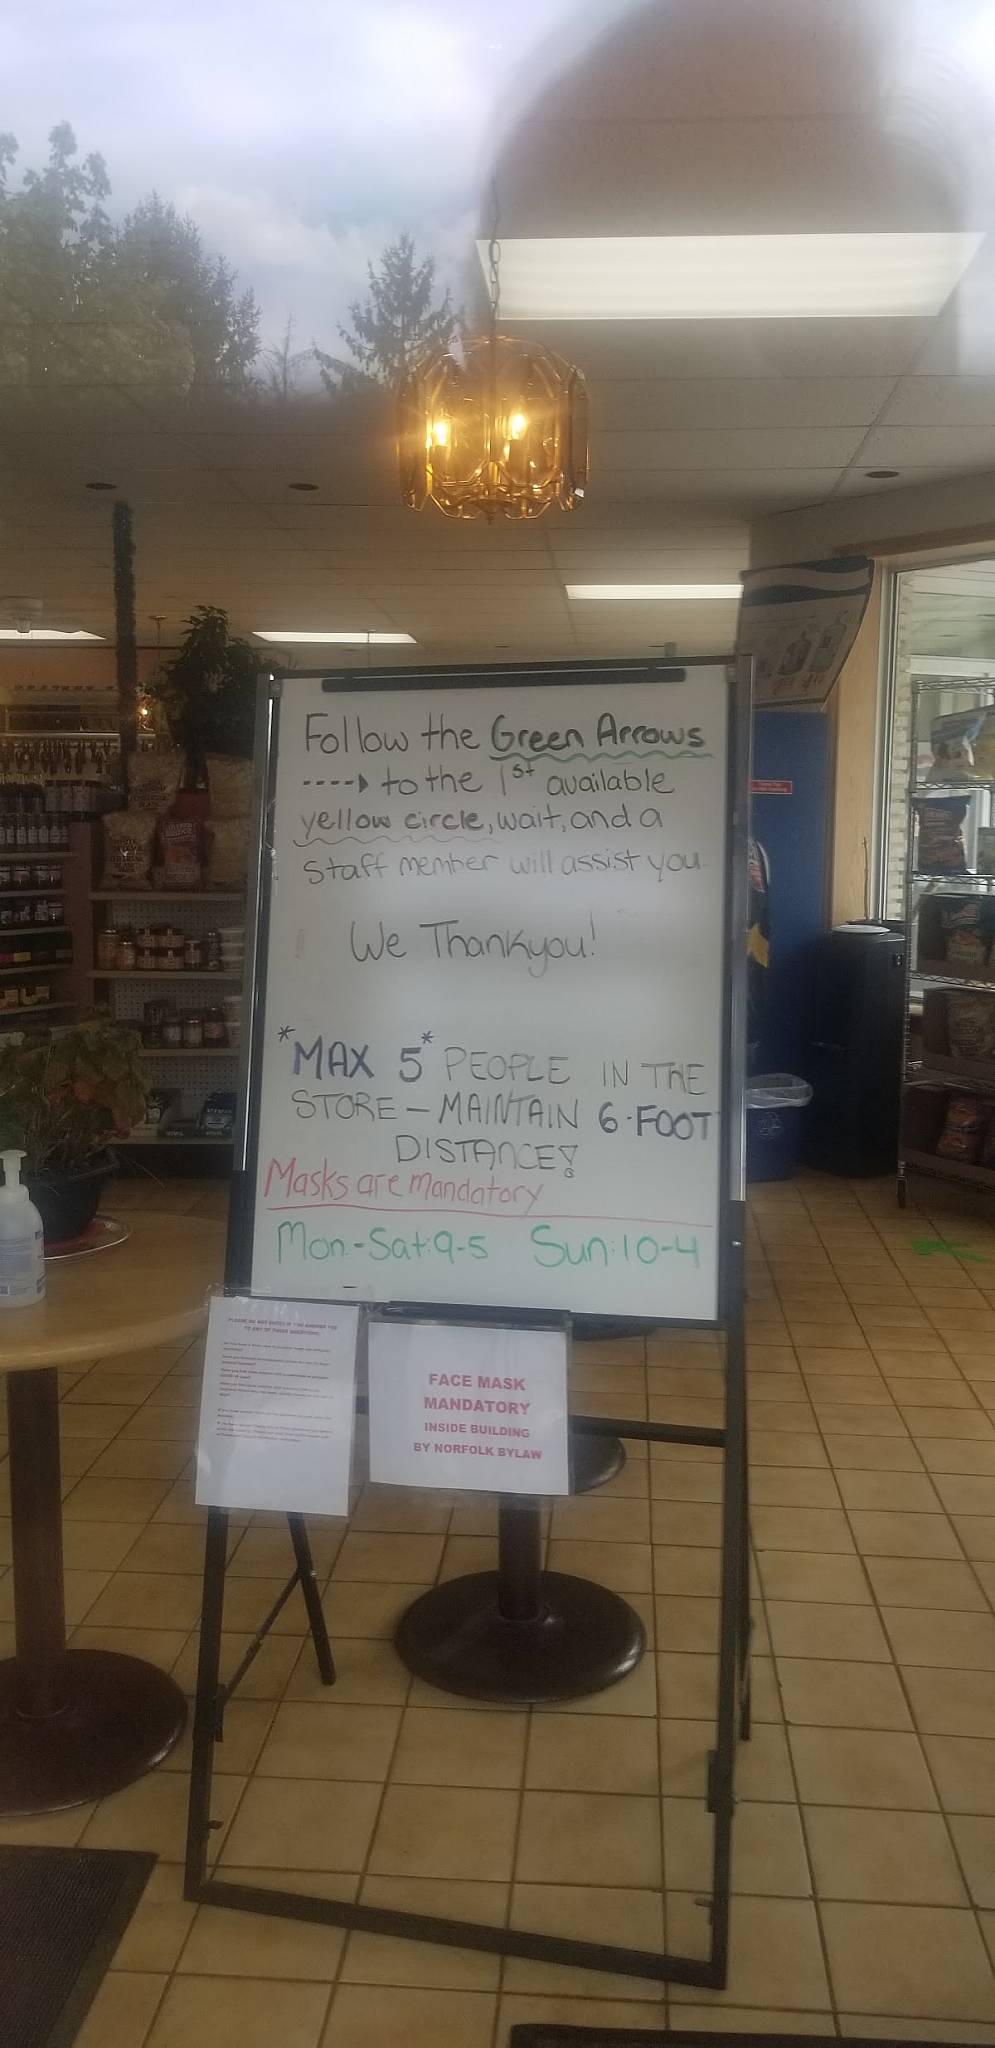 Follow the Green Arrows
to the 1st available
yellow circle, wait, and a
staff member will assist you.
We Thankyou!
*MAX 5* PEOPLE IN THE
STORE - MAINTAIN 6-FOOT
DISTANCE!
Masks are mandatory
Mon.-Sat:9-5 Sun:10-4
PLEASE DO NOT ENTER IF YOU ANSWER YES
TO ANY OF THESE QUESTIONS
FACE MASK
MANDATORY
INSIDE BUILDING
BY NORFOLK BYLAW